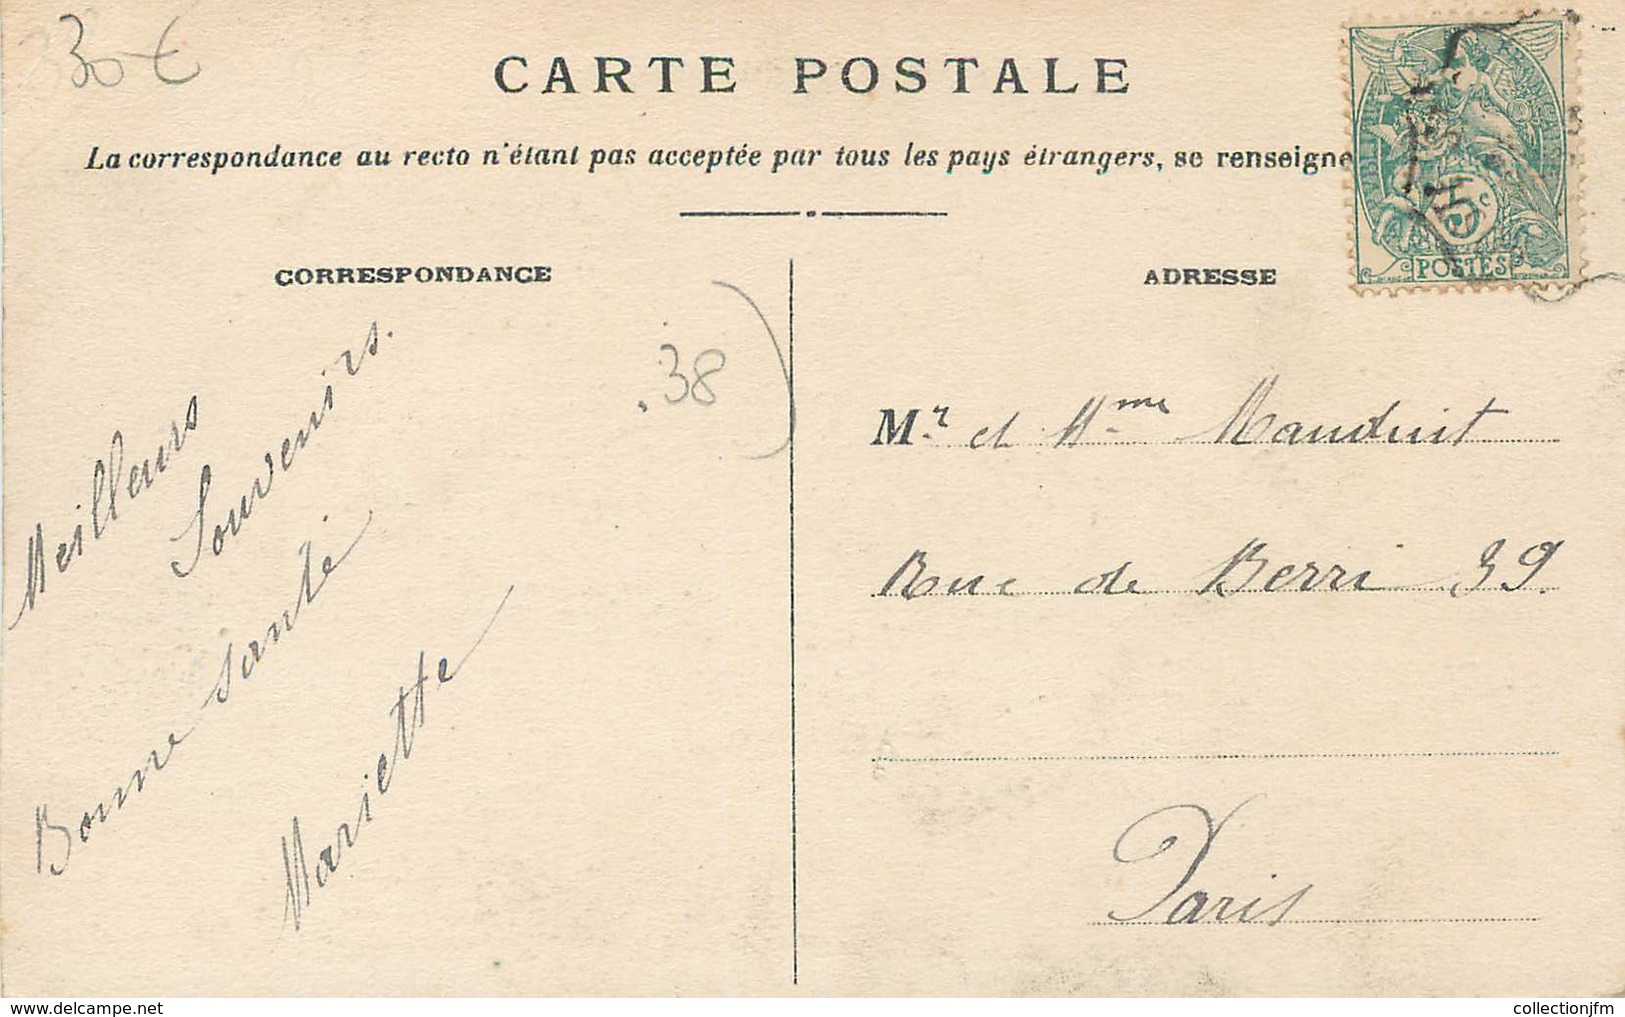 30 €
CARTE POSTALE
La correspondance au recto n'étant pas acceptée par tous les pays étrangers, se renseigne
5c
POSTES
CORRESPONDANCE
ADRESSE
38
Meilleurs
Souvenirs.
Bonne santé
Mariette
Mr et Mme Mauduit
Rue de Berri 39.
Paris
www.delcampe.net
collectionjfm